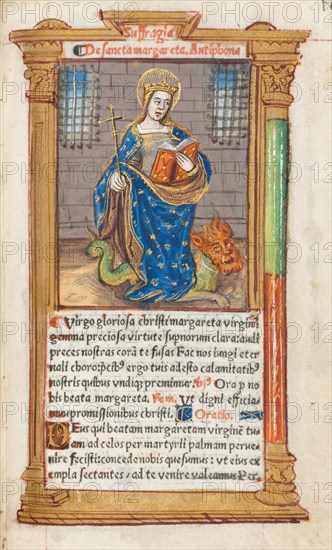 Suffragia
De sancta margareta. Antiphona
Virgo gloriosa christi margareta virginū
gemma preciosa virtute supnorum clara: audi
preces nostras corā te fusas Fac nos iungi eter
nali choro: p̄cib⁹ ergo tuis adesto calamitatib⁹
nostris quibus vndiq; premimur. ℣s Ora p no
bis beata margareta. Res. Ut digni efficia
mur promissionibus christi. Oratio.
Deus qui beatam margaretam virginē tu
am ad celos per martyrii palmam perue
nire fecisti: concede nobis quesumus: ut eius ex
empla sectantes, ad te venire valeamus Per